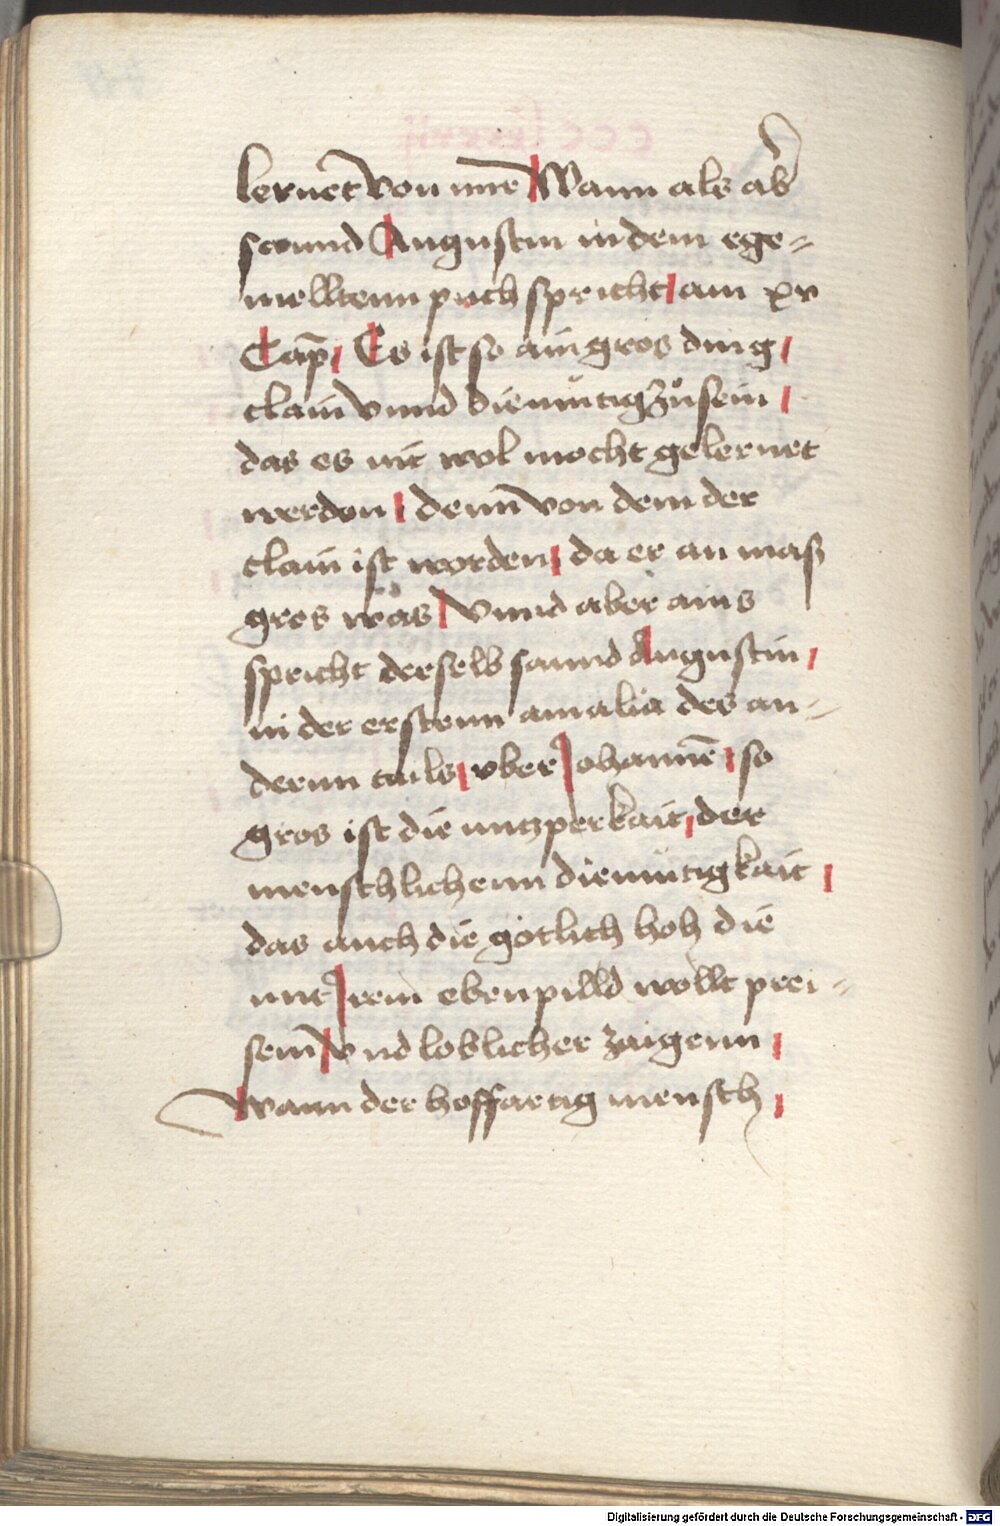 lernet von mir Wann als ab̕
sannd Augustin in dem ege⸗
melltenn puch spricht am xv
Cap̄ Es ist so ain gros ding
clain vnnd diemütig zuͦ sein
das es nit wol mocht gelernet
werden denn̄ von dem der
clain ist worden da er an mass
gros was Vnnd aber ains
spricht derselb sannd Augustin
in der erstenn amalia des an⸗
dernn tails vber Johannē so
gros ist die nutzperkait der
menschlichenn diemütigkait
das auch die gotlich hoh die
mit Irem ebenpilld wollt prei⸗
senn̄ vnd loblicher zaigenn
Wann der hoffartig mensch
Digitalisierung gefördert durch die Deutsche Forschungsgemeinschaft - DFG